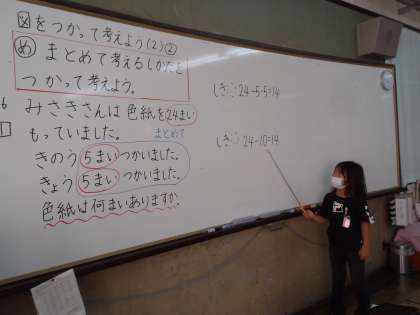 図をつかって考えよう(2)②
め まとめて考えるしかたを
つかって考えよう。
6
みさきさんは色紙を24まい
もっていました。
まとめて
きのう5まいつかいました。
きょう5まいつかいました。
色紙は何まいありますか。
しき: 24-5-5=14
しき: 24-10=14